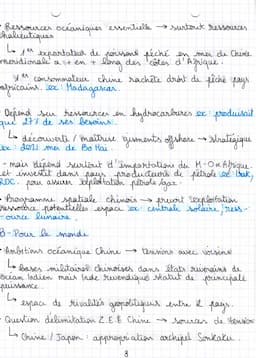 - Ressources océaniques essentielle → surtout ressources
halieutiques
↳ 1er exportateur de poisson pêché en mer de Chine
méridionale a et en + long des côtes d'Afrique.
1er consommateur chine rachète droit de pêche pays
africains. ex: Madagascar.
- Dépend sur ressources en hydrocarbures ex: produisait
que 27% de ses besoins.
↳ découverte / maîtrise gisments offshore → stratégique
ex: 2021 mer de Bo Hai
- mais dépend surtout d'importations du M-O & Afrique
et investit dans pays producteurs de pétrole ex: Irak,
RDC. pour assurer exploitation pétrole/gaz.
- Programme spatiale chinois → prevoit exploitation
ressource potentielle espace ex: centrale solaire / ress-
-ource lunaire.
B- Pour le monde
- Ambitions océanique Chine → tensions avec voisins
↳ bases militaires chinoises dans États riverains de
Océan Indien mais Inde revendique statut de principale
puissance.
↳ espace de rivalités géopolitiques entre 2 pays.
- Question délimitation Z.E.E Chine → sources de tension
↳ Chine / Japon: appropriation archipel Senkaku.
8